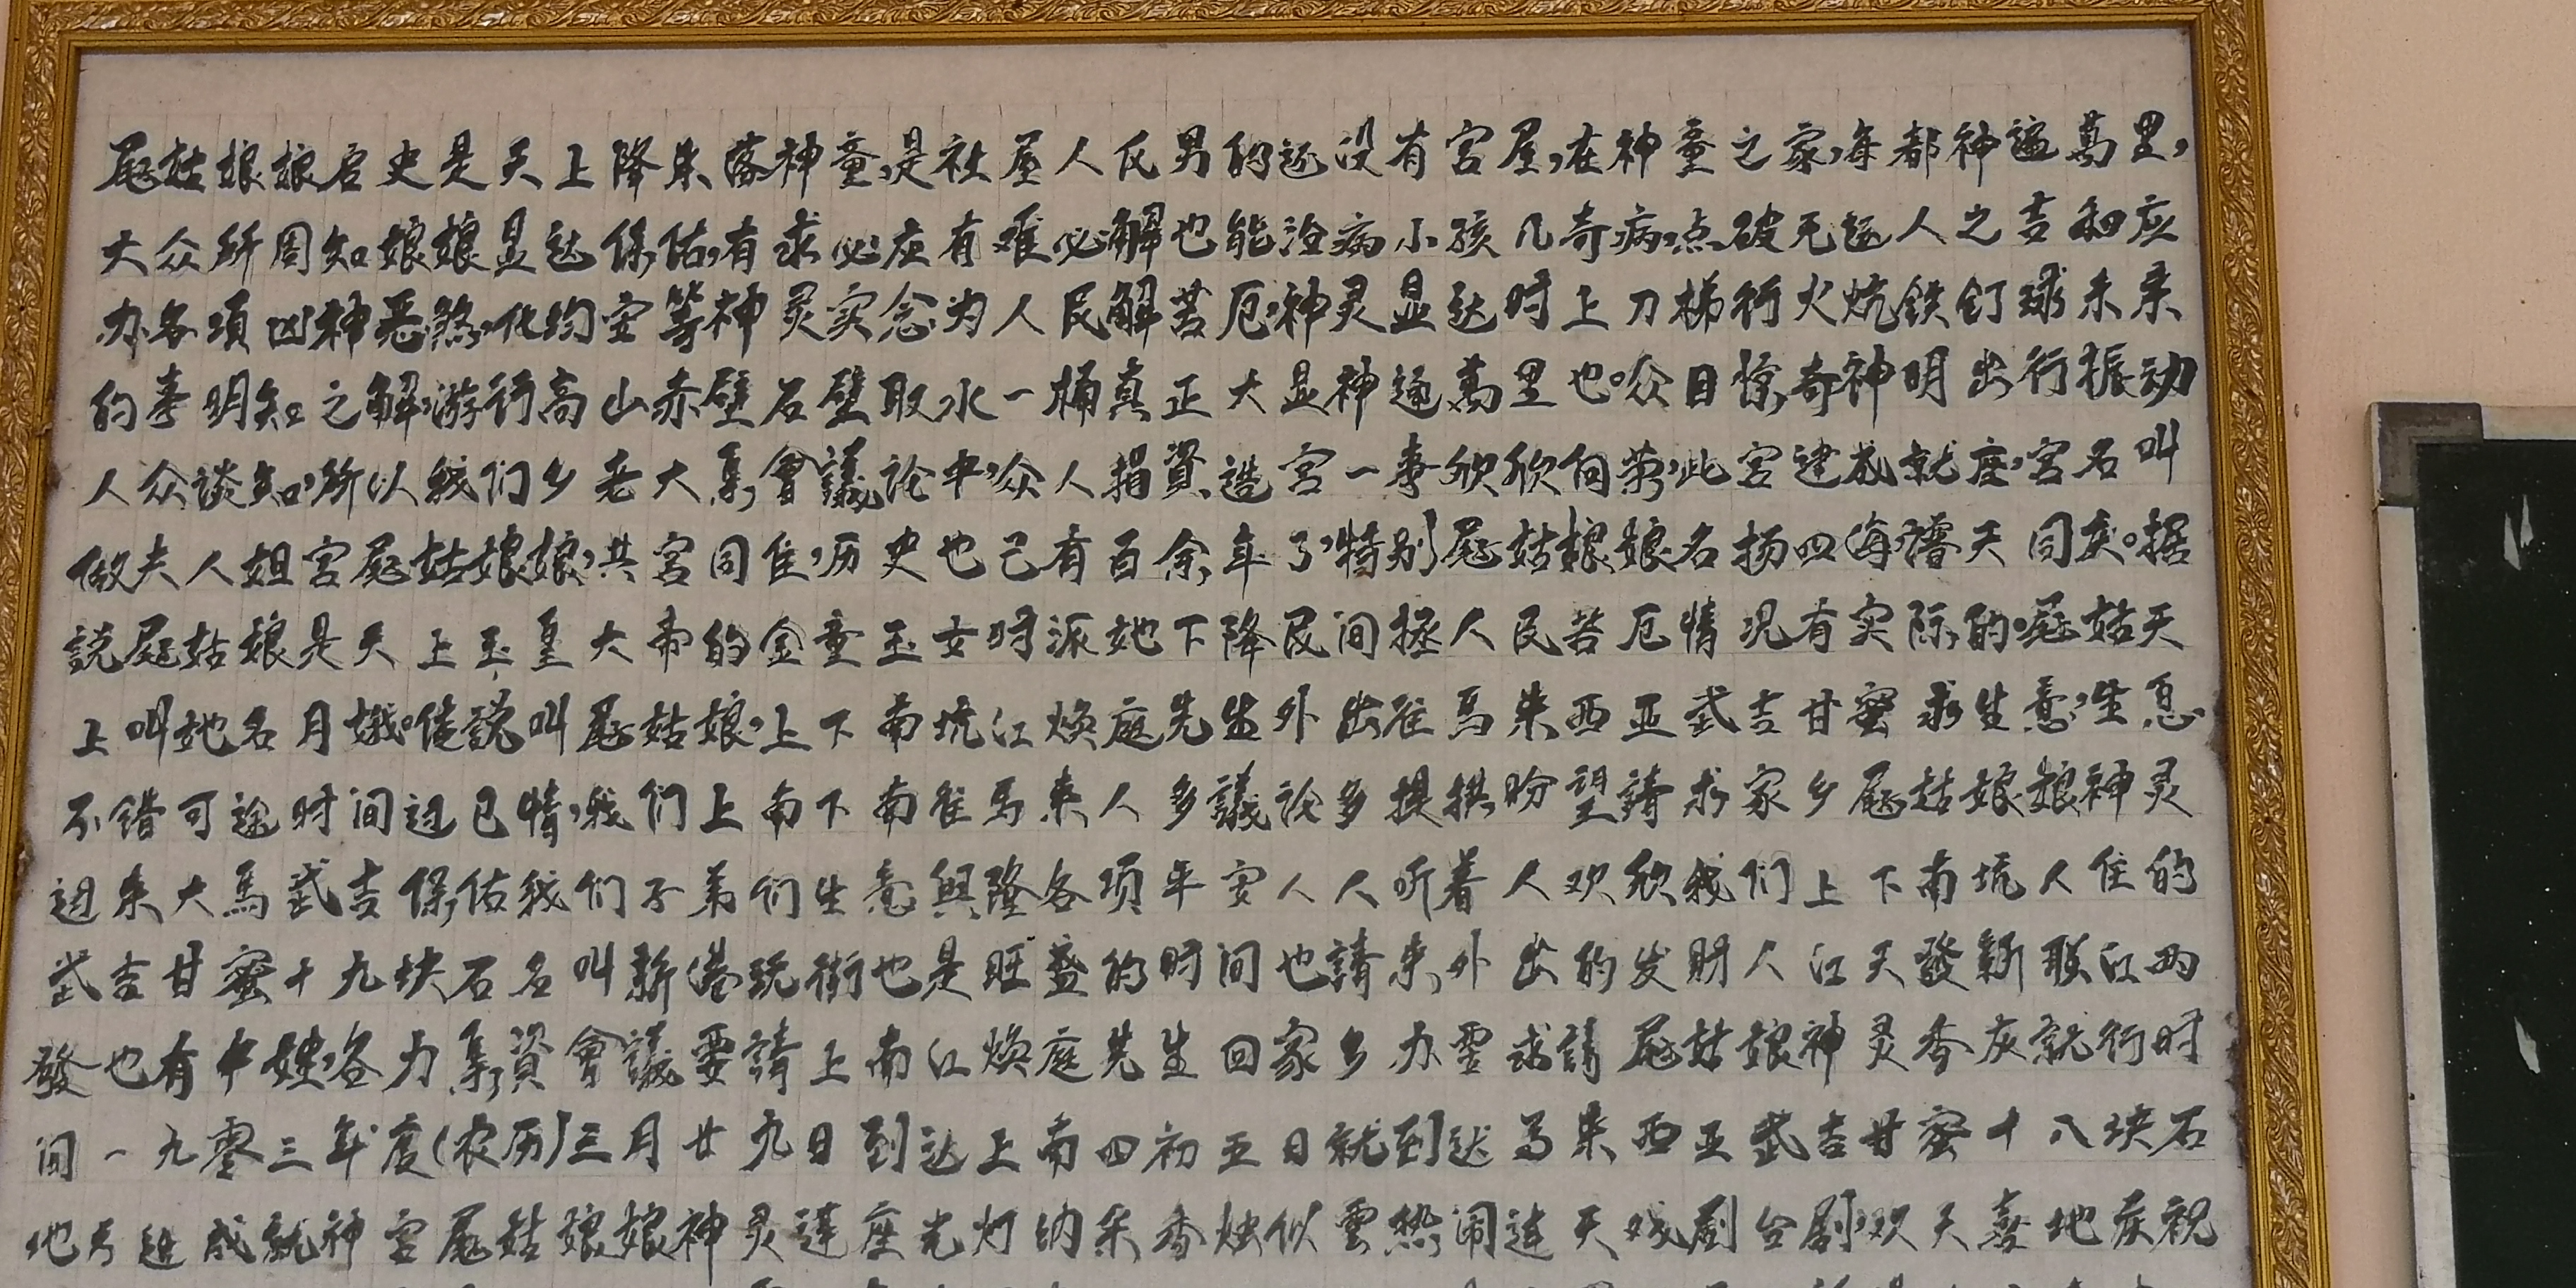 娘娘启史是天上降来落神童,是社屋人民男的还没有宫屋,在神童之家,年都神通萬里,
大众所周知娘娘显达保佑,有求必应有难必解也能治病小孩几奇病,点破无运人之吉和应
办各項凶神恶煞,化均安等神灵实念为人民解苦厄,神灵显达时上刀梯行火炕铁钉球未来
的事明知之解,游行高山赤壁石壁取水一桶真正大显神通萬里也。众目惊奇神明出行振动
人众谈知,所以我们乡老大集會議论中,众人捐資造宫一事欣欣向荣,此宫建成就座,宫名叫
做夫人姐宫姑娘娘,共宫同住,历史也已有百余年了,特别姑娘娘名扬四海,天同庆。据
説姑娘是天上玉皇大帝的金童玉女时派她下降民间拯人民苦厄情况有实际的。姑天
上叫她名月娥。傳說叫姑娘,上下南坑江焕庭先生外出往馬来西亚武吉甘蜜求生意,生息
不错可途时间过已情,我们上南下南往马来人多議论多提拱盼望請求家乡姑娘娘神灵
过来大馬武吉保佑我们子弟们生意興隆各项平安人人听着人欢欣我们上下南坑人住的
武吉甘蜜十九块石名叫新港玩街也是旺盛的时间也請来外出的发财人江天發新联江两
發也有中姓,各力集資會議要請上南江焕庭先生回家乡办要求請姑娘神灵香灰就行时
间一九零三年度(农历)三月廿九日到达上南四初五日就到达马来西亚武吉甘蜜十八块石
地方建成就神宫姑娘娘神灵莲座光灯纳采香烛似雲热闹连天戏剧台剧,欢天喜地庆祝